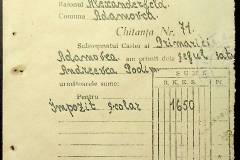 Raionul Alexanderfeld
Comuna Adamovca
Chitanța Nr. 71.
Subsemnatul Casier al Primăriei
Adamovca am primit dela șeful satu
Andreevca Godim
următoarele sume:
SUMELE
R. K. K. S. | R. K. S.
Pentru
Impozit școlar 1650